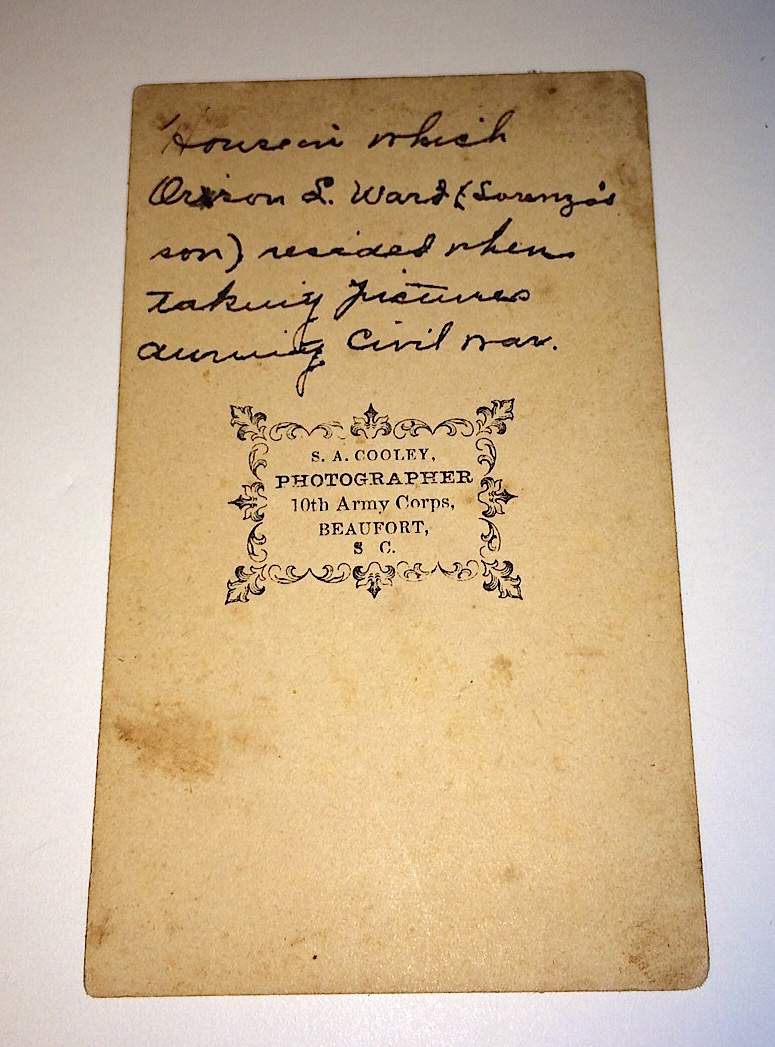 House in which
Orison L. Ward (Lorenzo's
son) resided when
taking pictures
during Civil War.
S. A. COOLEY,
PHOTOGRAPHER
10th Army Corps,
BEAUFORT,
S C.